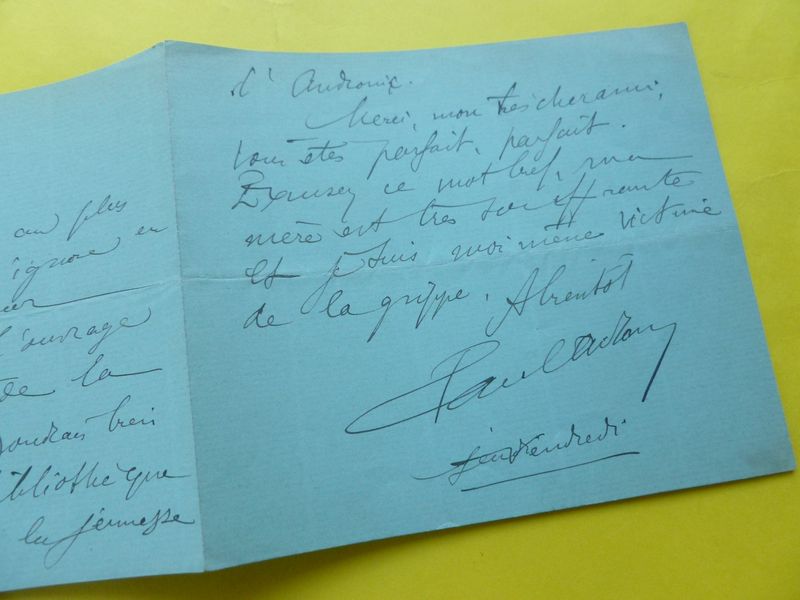 au plus
ignore en
l'ouvrage
de la
voudrais bien
bibliothèque
la jeunesse
d'Andronic.
Merci, mon très cher ami,
vous êtes parfait, parfait.
Excusez ce mot bref, ma
mère est très souffrante
et je suis moi même victime
de la grippe. A bientôt
Paul Adam
vendredi